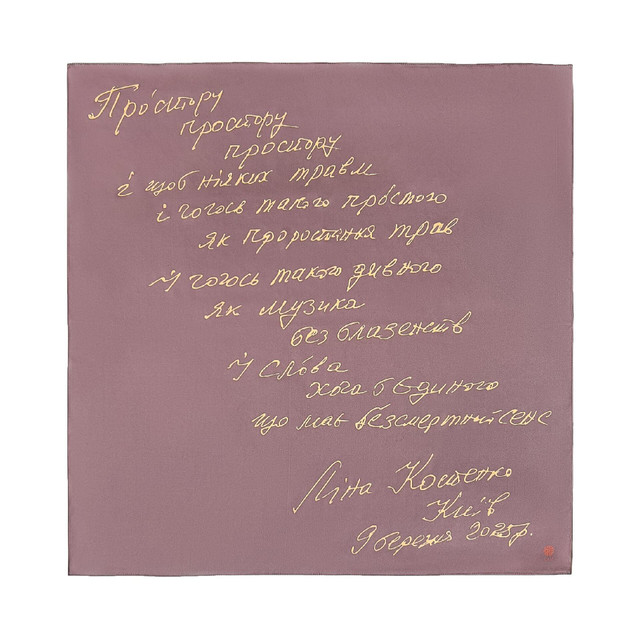 Простору
простору
простору
і щоб ніяких травм
і чогось такого простого
як проростання трав
й чогось такого дивного
як музика
без блазенств
й слова
хоча б єдиного
що має безсмертний сенс
Ліна Костенко
Київ
9 березня 2025 р.